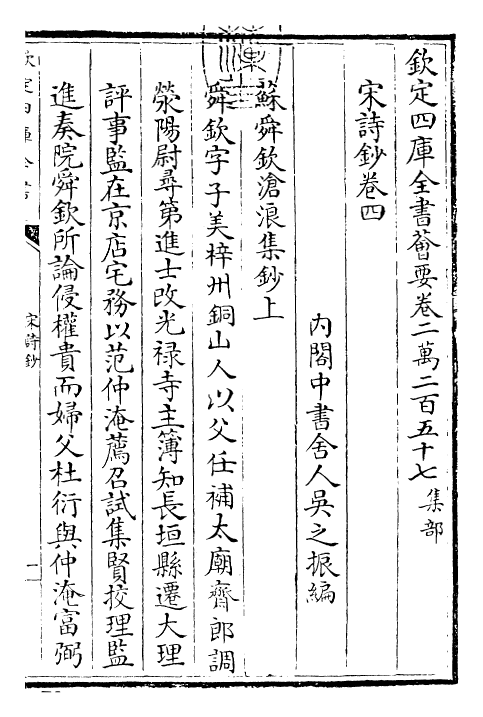 欽定四庫全書薈要卷二萬二百五十七集部
宋詩鈔卷四
內閣中書舍人吳之振編
蘇舜欽滄浪集鈔上
舜欽字子美梓州銅山人以父任補太廟齊郎調
滎陽尉尋第進士改光禄寺主簿知長垣縣遷大理
評事監在京店宅務以范仲淹薦召試集賢挍理監
進奏院舜欽所論侵權貴而婦父杜衍與仲淹富弼
欽定四庫全書
宋詩鈔
一